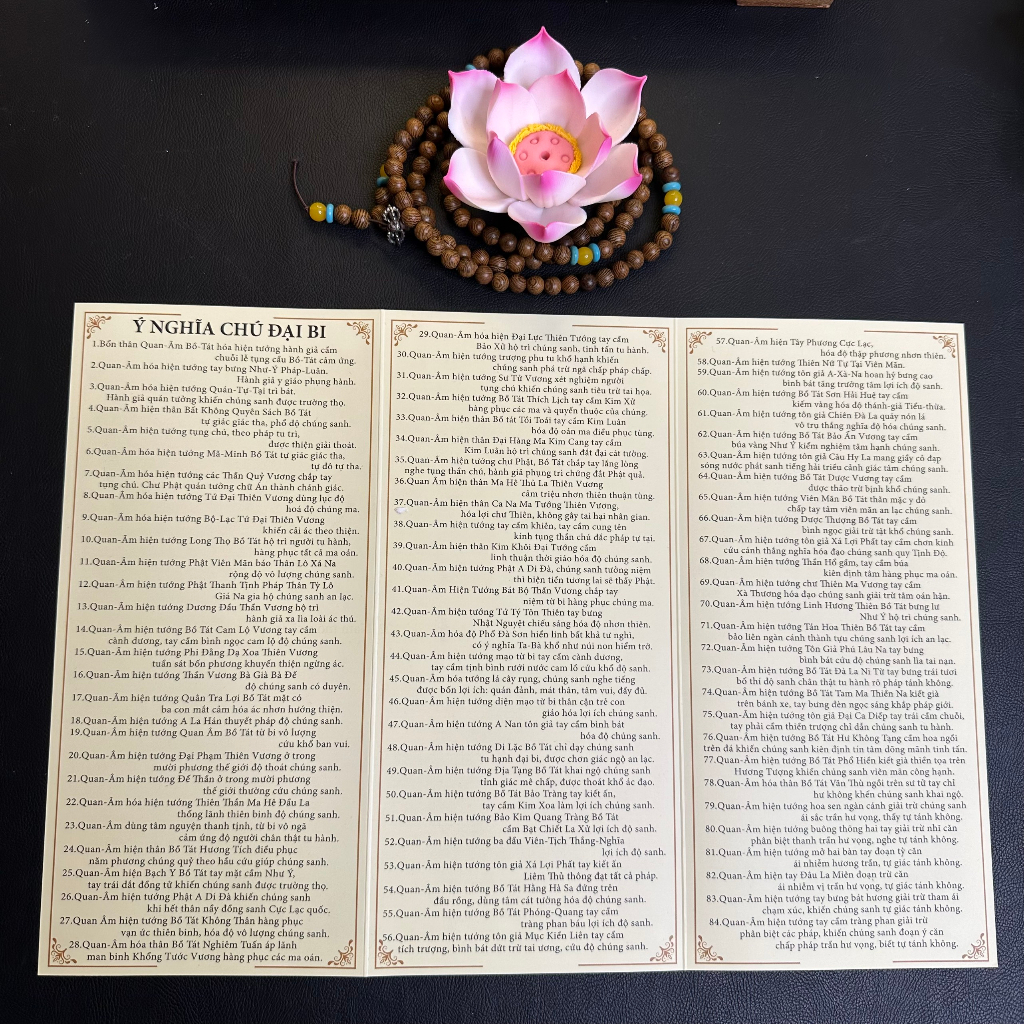 Ý NGHĨA CHÚ ĐẠI BI
1.Bổn thân Quan-Âm Bồ-Tát hóa hiện tướng hành giả cầm
chuỗi lễ tụng cầu Bồ-Tát cảm ứng.
2.Quan-Âm hiện tướng tay bưng Như-Ý Pháp-Luân.
Hành giả y giáo phụng hành.
3.Quan-Âm hóa hiện tướng Quán-Tự-Tại trì bát.
Hành giả quán tưởng khiến chúng sanh được trường thọ.
4.Quan-Âm hiện thân Bất Không Quyên Sách Bồ Tát
tự giác giác tha, phổ độ chúng sanh.
5.Quan-Âm hiện tướng tụng chú, theo pháp tu trì,
được thiện giải thoát.
6.Quan-Âm hiện tướng Mã-Minh Bồ Tát tự giác giác tha,
tự độ tự tha.
7.Quan-Âm hóa hiện tướng các Thần Quỷ Vương chắp tay
tụng chú. Chư Phật quán tưởng chữ Án thành chánh giác.
8.Quan-Âm hóa hiện tướng Tứ Đại Thiên Vương dùng lục độ
hoá độ chúng ma.
9.Quan-Âm hóa hiện tướng Bộ-Lạc Tứ Đại Thiên Vương
khiển cải ác theo thiện.
10.Quan-Âm hiện tướng Long Thọ Bồ Tát hộ trì người tu hành,
hàng phục tất cả ma oán.
11.Quan-Âm hiện tướng Phật Viên Mãn báo Thân Lô Xá Na
rộng độ vô lượng chúng sanh.
12.Quan-Âm hiện tướng Phật Thanh Tịnh Pháp Thân Tỳ Lô
Giá Na gia hộ chúng sanh an lạc.
13.Quan-Âm hiện tướng Dương Đầu Thần Vương hộ trì
hành giả xa lìa loài ác thú.
14.Quan-Âm hiện tướng Bồ Tát Cam Lộ Vương tay cầm
cành dương, tay cầm bình ngọc cam lộ độ chúng sanh.
15.Quan-Âm hiện tướng Phi Đằng Dạ Xoa Thiên Vương
tuần sát bốn phương khuyến thiện ngừng ác.
16.Quan-Âm hiện tướng Thần Vương Bà Già Bà Đế
độ chúng sanh có duyên.
17.Quan-Âm hiện tướng Quân Tra Lợi Bồ Tát mặt có
ba con mắt cảm hóa ác nhơn hướng thiện.
18.Quan-Âm hiện tướng A La Hán thuyết pháp độ chúng sanh.
19.Quan-Âm hiện tướng Quan Âm Bồ Tát từ bi vô lượng
cứu khổ ban vui.
20.Quan-Âm hiện tướng Đại Phạm Thiên Vương ở trong
mười phương thế giới độ thoát chúng sanh.
21.Quan-Âm hiện tướng Đế Thần ở trong mười phương
thế giới thường cứu chúng sanh.
22.Quan-Âm hóa hiện tướng Thiên Thần Ma Hê Đầu La
thống lãnh thiên binh độ chúng sanh.
23.Quan-Âm dùng tâm nguyện thanh tịnh, từ bi vô ngã
cảm ứng độ người chân thật tu hành.
24.Quan-Âm hiện thân Bồ Tát Hương Tích điều phục
năm phương chúng quỷ theo hầu cứu giúp chúng sanh.
25.Quan-Âm hiện Bạch Y Bồ Tát tay mặt cầm Như Ý,
tay trái dắt đồng tử khiến chúng sanh được trường thọ.
26.Quan-Âm hiện tướng Phật A Di Đà khiến chúng sanh
khi hết thân nầy đồng sanh Cực Lạc quốc.
27.Quan Âm hiện tướng Bồ Tát Không Thân hàng phục
vạn ức thiên binh, hóa độ vô lượng chúng sanh.
28.Quan-Âm hóa thân Bồ Tát Nghiêm Tuấn áp lãnh
man binh Khổng Tước Vương hàng phục các ma oán.
29.Quan-Âm hóa hiện Đại Lực Thiên Tướng tay cầm
Bảo Xử hộ trì chúng sanh, tinh tấn tu hành.
30.Quan-Âm hiện tướng trượng phu tu khổ hạnh khiến
chúng sanh phá trừ ngã chấp pháp chấp.
31.Quan-Âm hiện tướng Sư Tử Vương xét nghiệm người
tụng chú khiến chúng sanh tiêu trừ tai họa.
32.Quan-Âm hiện tướng Bồ Tát Thích Lịch tay cầm Kim Xử
hàng phục các ma và quyến thuộc của chúng.
33.Quan-Âm hiện thân Bồ tát Tồi Toái tay cầm Kim Luân
hóa độ oán ma đều phục tùng.
34.Quan-Âm hiện thân Đại Hàng Ma Kim Cang tay cầm
Kim Luân hộ trì chúng sanh đắt đại cát tường.
35.Quan-Âm hiện tướng chư Phật, Bồ Tát chắp tay lắng lòng
nghe tụng thần chú, hành giả phụng trì chứng đắt Phật quả.
36.Quan Âm hiện thân Ma Hê Thủ La Thiên Vương
cảm triệu nhơn thiên thuận tùng.
37.Quan-Âm hiện thân Ca Na Ma Tướng Thiên Vương,
hóa lợi chư Thiên, không gây tai hại nhân gian.
38.Quan-Âm hiện tướng tay cầm khiên, tay cầm cung tên
kinh tụng thần chú đắc pháp tự tai.
39.Quan-Âm hiện thân Kim Khôi Đại Tướng cầm
linh thuận thời giáo hóa độ chúng sanh.
40.Quan-Âm hiện tướng Phật A Di Đà, chúng sanh tưởng niệm
thì hiện tiền tương lai sẽ thấy Phật.
41.Quan-Âm Hiện Tướng Bát Bộ Thần Vương chấp tay
niệm từ bi hàng phục chúng ma.
42.Quan-Âm hiện tướng Tứ Tý Tôn Thiên tay bưng
Nhật Nguyệt chiếu sáng hóa độ nhơn thiên.
43.Quan-Âm hóa độ Phổ Đà Sơn hiển linh bất khả tư nghì,
có ý nghĩa Ta-Bà khổ như núi non hiểm trở.
44.Quan-Âm hiện tướng mạo từ bi tay cầm cành dương,
tay cầm tịnh bình rưới nước cam lồ cứu khổ độ sanh.
45.Quan-Âm hóa tướng lá cây rụng, chúng sanh nghe tiếng
được bốn lợi ích: quán đảnh, mát thân, tâm vui, đầy đủ.
46.Quan-Âm hiện tướng diện mạo từ bi thân cận trẻ con
giáo hóa lợi ích chúng sanh.
47.Quan-Âm hiện tướng A Nan tôn giả tay cầm bình bát
hóa độ chúng sanh.
48.Quan-Âm hiện tướng Di Lặc Bồ Tát chỉ dạy chúng sanh
tu hạnh đại bi, được chơn giác ngộ an lạc.
49.Quan-Âm hiện tướng Địa Tạng Bồ Tát khai ngộ chúng sanh
tỉnh giác mê chấp, được thoát khổ ác đạo.
50.Quan-Âm hiện tướng Bồ Tát Bảo Tràng tay kiết ấn,
tay cầm Kim Xoa làm lợi ích chúng sanh.
51.Quan-Âm hiện tướng Bảo Kim Quang Tràng Bồ Tát
cầm Bạt Chiết La Xử lợi ích độ sanh.
52.Quan-Âm hiện tướng ba đầu Viên-Tịch Thắng-Nghĩa
lợi ích độ sanh.
53.Quan-Âm hiện tướng tôn giả Xá Lợi Phất tay kiết ấn
Liêm Thủ thông đạt tất cả pháp.
54.Quan-Âm hiện tướng Bồ Tát Hằng Hà Sa đứng trên
đầu rồng, dùng tâm cát tường hóa độ chúng sanh.
55.Quan-Âm hiện tướng Bồ Tát Phóng-Quang tay cầm
tràng phan báu lợi ích độ sanh.
56.Quan-Âm hiện tướng tôn giả Mục Kiền Liên tay cầm
tích trượng, bình bát dứt trừ tai ương, cứu độ chúng sanh.
57.Quan-Âm hiện Tây Phương Cực Lạc,
hóa độ thập phương nhơn thiên.
58.Quan-Âm hiện tướng Thiên Nữ Tự Tại Viên Mãn.
59.Quan-Âm hiện tướng tôn giả A-Xà-Na hoan hỷ bưng cao
bình bát tăng trưởng tâm lợi ích độ sanh.
60.Quan-Âm hiện tướng Bồ Tát Sơn Hải Huệ tay cầm
kiếm vàng hóa độ thánh-giả Tiểu-thừa.
61.Quan-Âm hiện tướng tôn giả Chiên Đà La quảy nón lá
vô trụ thắng nghĩa độ hóa chúng sanh.
62.Quan-Âm hiện tướng Bồ Tát Bảo Ấn Vương tay cầm
búa vàng Như Ý kiểm nghiệm tâm hạnh chúng sanh.
63.Quan-Âm hiện tướng tôn giả Câu Hy La mang giấy cỏ đạp
sóng nước phát sanh tiếng hải triều cảnh giác tâm chúng sanh.
64.Quan-Âm hiện tướng Bồ Tát Dược Vương tay cầm
dược thảo trừ bịnh khổ chúng sanh.
65.Quan-Âm hiện tướng Viên Mãn Bồ Tát thân mặc y đỏ
chắp tay tâm viên mãn an lạc chúng sanh.
66.Quan-Âm hiện tướng Dược Thượng Bồ Tát tay cầm
bình ngọc giải trừ tật khổ chúng sanh.
67.Quan-Âm hiện tướng tôn giả Xá Lợi Phất tay cầm chơn kinh
cứu cánh thắng nghĩa hóa đạo chúng sanh quy Tịnh Độ.
68.Quan-Âm hiện tướng Thần Hổ gầm, tay cầm búa
kiên định tâm hàng phục ma oán.
69.Quan-Âm hiện tướng chư Thiên Ma Vương tay cầm
Xà Thương hóa đạo chúng sanh giải trừ tâm oán hận.
70.Quan-Âm hiện tướng Linh Hương Thiên Bồ Tát bưng lư
Như Ý hộ trì chúng sanh.
71.Quan-Âm hiện tướng Tán Hoa Thiên Bồ Tát tay cầm
bảo liên ngàn cánh thành tựu chúng sanh lợi ích an lạc.
72.Quan-Âm hiện tướng Tôn Giả Phú Lâu Na tay bưng
bình bát cứu độ chúng sanh lìa tai nạn.
73.Quan-Âm hiện tướng Bồ Tát Đà La Ni Tử tay bưng trái tươi
bố thí độ sanh chân thật tu hành rõ pháp tánh không.
74.Quan-Âm hiện tướng Bồ Tát Tam Ma Thiền Na kiết già
trên bánh xe, tay bưng đèn ngọc sáng khắp pháp giới.
75.Quan-Âm hiện tướng tôn giả Đại Ca Diếp tay trái cầm chuỗi,
tay phải cầm thiền trượng chỉ dẫn chúng sanh tu hành.
76.Quan-Âm hiện tướng Bồ Tát Hư Không Tạng cầm hoa ngồi
trên đá khiến chúng sanh kiên định tín tâm dõng mãnh tinh tấn.
77.Quan-Âm hiện tướng Bồ Tát Phổ Hiền kiết già thiền tọa trên
Hương Tượng khiến chúng sanh viên mãn công hạnh.
78.Quan-Âm hiện tướng Bồ Tát Văn Thù ngồi trên sư tử tay chỉ
hư không khến chúng sanh khai ngộ.
79.Quan-Âm hiện tướng hoa sen ngàn cánh giải trừ chúng sanh
ái sắc trần hư vọng, thấy tự tánh không.
80.Quan-Âm hiện tướng buông thõng hai tay giải trừ nhi căn
phân biệt thanh trần hư vọng, nghe tự tánh không.
81.Quan-Âm hiện tướng mở hai bàn tay đoạn tỷ căn
ái nhiễm hương trần, tự giác tánh không.
82.Quan-Âm hiện tay Đâu La Miên đoạn trừ căn
ái nhiễm vị trần hư vọng, tự giác tánh không.
83.Quan-Âm hiện tướng tay bưng bát hương giải trừ tham ái
chạm xúc, khiến chúng sanh tự giác tánh không.
84.Quan-Âm hiện tướng tay cầm tràng phan giải trừ
phân biệt các pháp, khiến chúng sanh đoạn ý căn
chấp pháp trần hư vọng, biết tự tánh không.